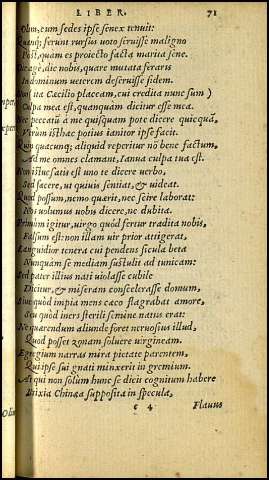 LIBER. 71
Olim, cum sedes ipse senex tenuit:
Quamq; ferunt rursus uoto seruisse maligno
Post, quam es proiecto facta marita sene.
Dic agè, die nobis, quare mutata feraris
In dominum ueterem deseruisse fidem.
Non ita Cæcilio placeam, cui credita nunc sum)
Culpa mea est, quanquam dicitur esse mea.
Nec peccatũ à me quisquam pote dicere quicquã,
Verum isthæc potius ianitor ipse facit.
Qui quacunq; aliquid reperitur nõ bene factum,
Ad me omnes clamant, Ianua culpa tua est.
Non istuc satis est uno te dicere uerbo,
Sed facere, ut quiuis sentiat, & uideat.
Quid possum, nemo quærit, nec scire laborat:
Nos uolumus nobis dicere, ne dubita.
Primum igitur, uirgo quòd fertur tradita nobis,
Falsum est: non illam uir prior attigerat,
Languidior tenera cui pendens sicula beta
Nunquam se mediam sustulit ad tunicam:
Sed pater illius nati uiolasse cubile
Dicitur, & miseram conscelerasse domum,
Siue quòd impia mens cæco flagrabat amore,
Seu quòd iners sterili semine natus erat:
Ne quærendum aliunde foret neruosius illud,
Quod posset zonam soluere uirgineam.
Egregium narras mira pietate parentem,
Qui ipse sui gnati minxerit in gremium.
At qui non solùm hunc se dicit cognitum habere
Brixia Chinæa supposita in specula,
e 4 Flauus